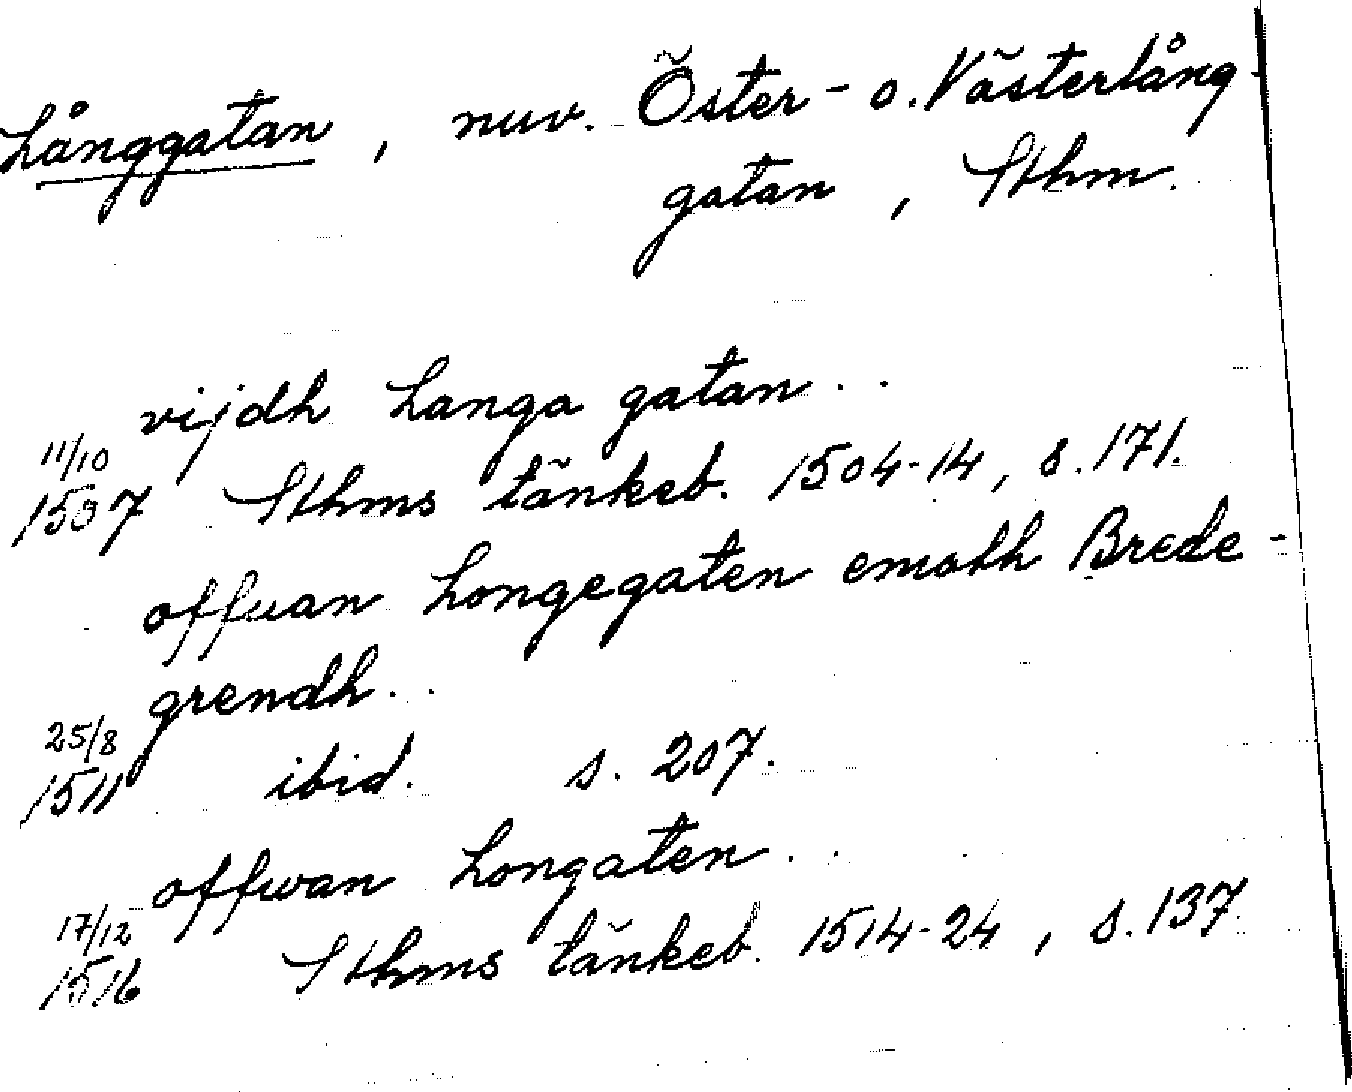 Långgatan, nuv. Öster- o. Västerlång-
gatan, Sthm.
vijdh Langa gatan..
11/10
1507 Sthms tänkeb. 1504-14, s. 171.
offuan Longegaten emoth Brede-
grendh..
25/8
1511 ibid. s. 207.
offwan Longaten..
17/12
1516 Sthms tänkeb. 1514-24, s. 137